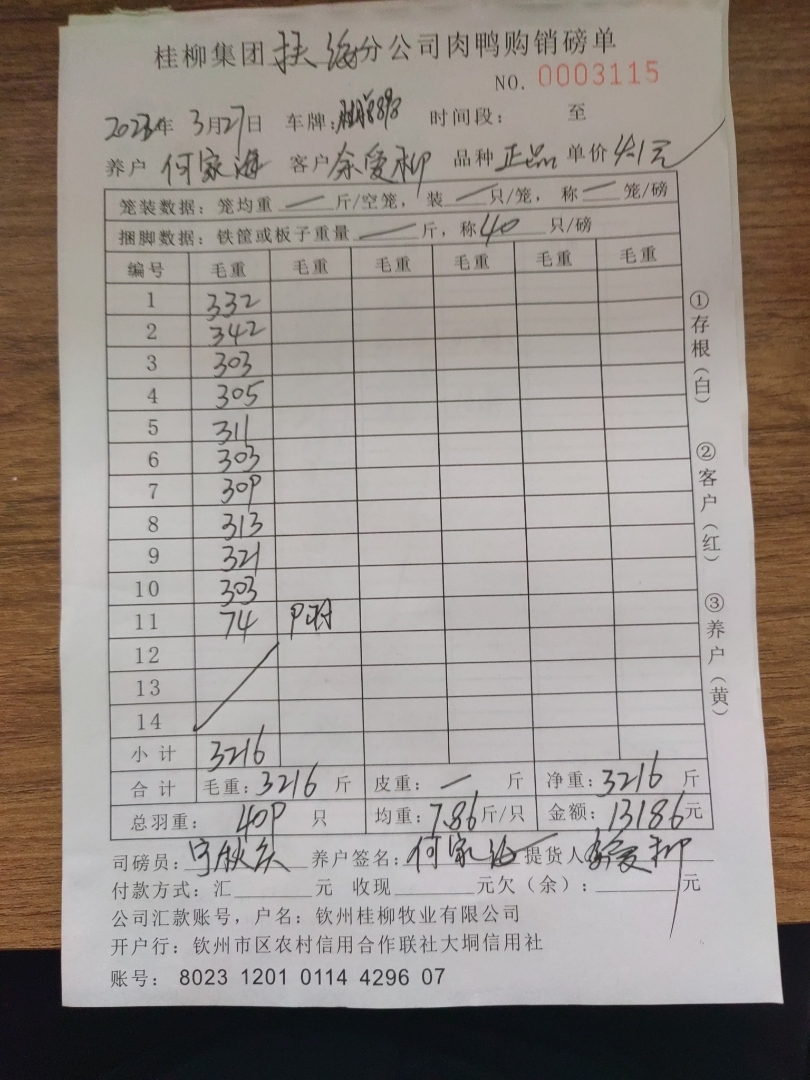 桂柳集团扶海分公司肉鸭购销磅单
NO. 0003115
2023年 3月27日 车牌: 时间段: 至
养户 何家海 客户 余爱柳 品种 正品 单价 4.1元
笼装数据: 笼均重 — 斤/空笼, 装 — 只/笼, 称 — 笼/磅
捆脚数据: 铁筐或板子重量 — 斤, 称 40 只/磅
编号 毛重 毛重 毛重 毛重 毛重 毛重
1 332
2 342
3 303
4 305
5 311
6 303
7 309
8 313
9 321
10 303
11 74 9羽
12
13
14
小计 3216
合计 毛重: 3216 斤 皮重: — 斤 净重: 3216 斤
总羽重: 409 只 均重: 7.86 斤/只 金额: 13186元
司磅员: 养户签名: 何家海 提货人 余爱柳
付款方式: 汇 元 收现 元欠(余): 元
公司汇款账号, 户名: 钦州桂柳牧业有限公司
开户行: 钦州市区农村信用合作联社大垌信用社
账号: 8023 1201 0114 4296 07
①存根(白) ②客户(红) ③养户(黄)